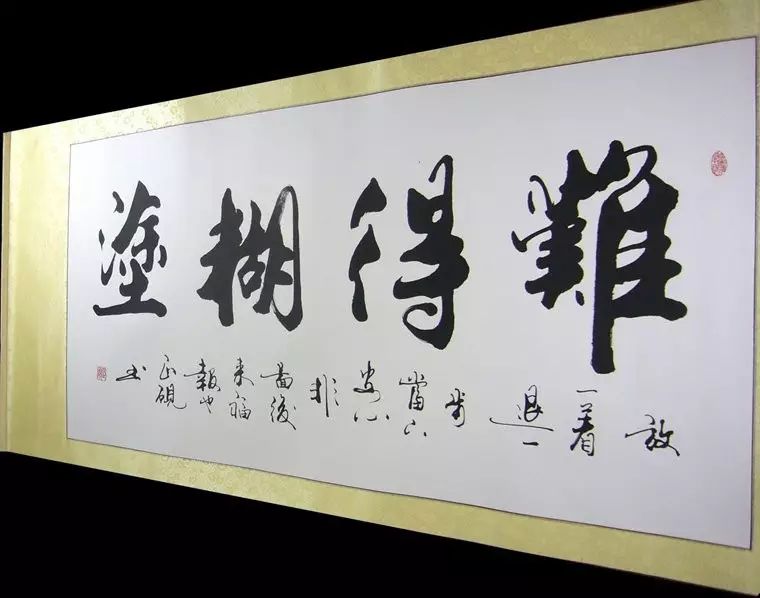 難得糊塗
放
一着
退一
步
當下
安心
非
圖後
来福
報也
书